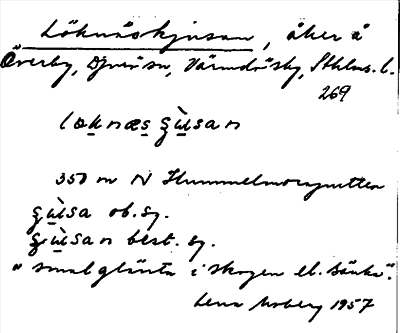 Löknäskjusan, åker å
Överby, Djurö sn, Värmdö sky, Sthlms l.
269
løknæs ʂùsan
350 m N Hummelmoraputten
ʂùsa ob. sg.
ʂùsan best. sg.
"smal glänta i skogen el. sänka".
Lena Moberg 1957